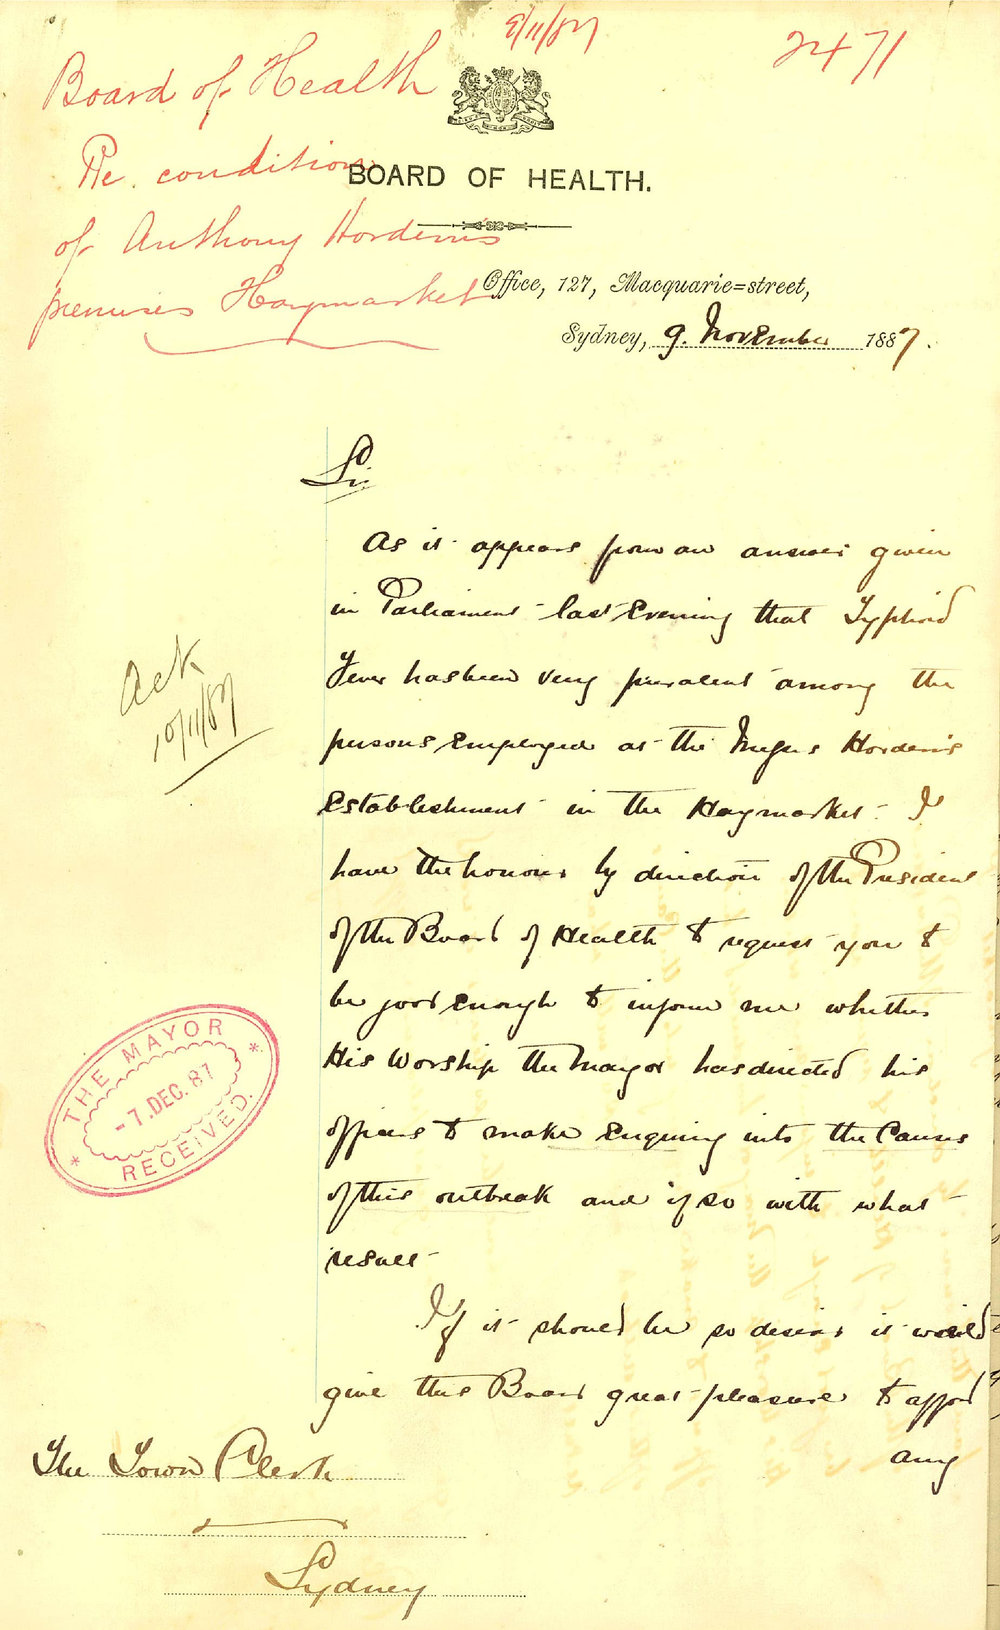 9/11/87
2471
Board of Health
Re. condition
of Anthony Horderns
premises Haymarket
BOARD OF HEALTH.
Office, 127, Macquarie=street,
Sydney, 9. November 1887.
Sir
As it appears from an answer given
in Parliament last Evening that Typhoid
Fever has been very prevalent among the
persons Employed at the Messrs Hordern's
Establishment in the Haymarket. I
have the honour by direction of the President
of the Board of Health to request you to
be good Enough to inform me whether
His Worship the Mayor has directed his
officers to make Enquiry into the Causes
of this outbreak and if so with what
result
If it should be so desired it would
give this Board great pleasure to afford
any
Ack
10/11/87
THE MAYOR
-7. DEC. 87
RECEIVED.
The Town Clerk
Sydney